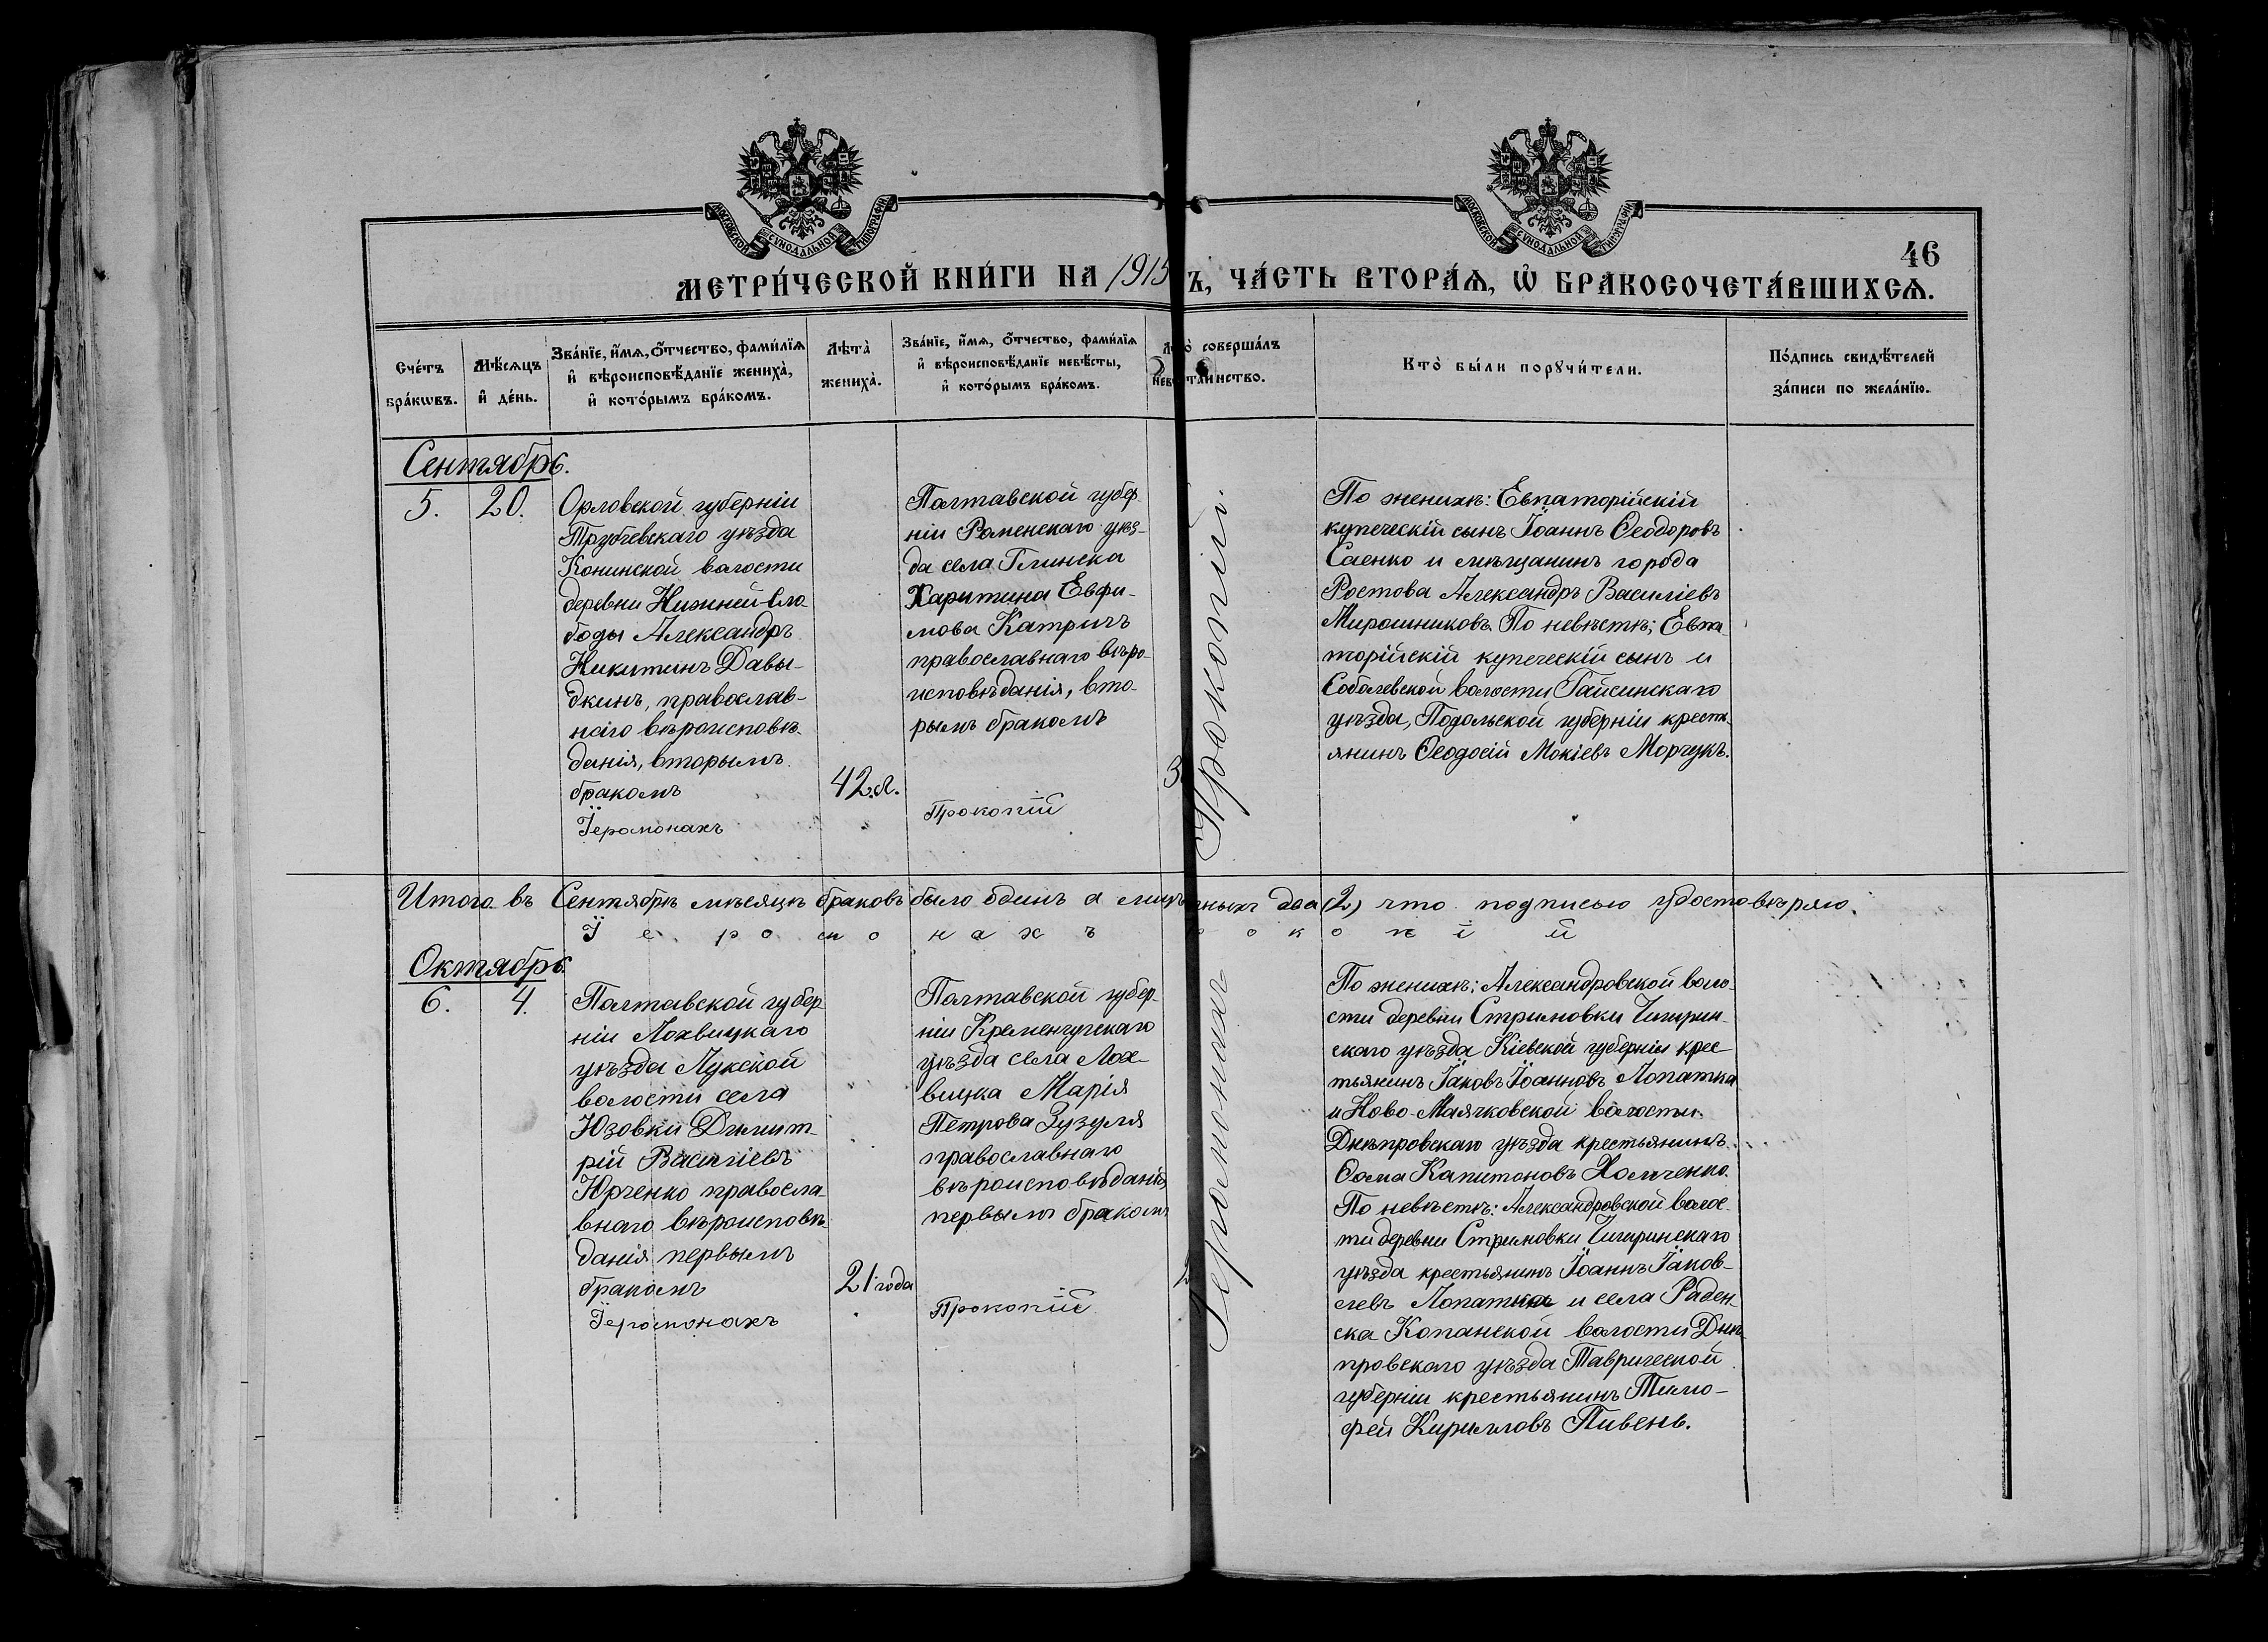 МОСКОВСКОЙ СѴНОДАЛЬНОЙ ТИПОГРАФІИ
МОСКОВСКОЙ СѴНОДАЛЬНОЙ ТИПОГРАФІИ
46
МЕТРИ́ЧЕСКОЙ КНИ́ГИ НА 1915 Ъ, ЧА́СТЬ ВТОРА́Ѧ, Ѽ БРАКОСОЧЕТА́ВШИХСѦ.
Сче́тъ бра́кѡвъ.
Мѣ́сѧцъ и҆ де́нь.
Зва́нїе, и҆́мѧ, ѻ҆́тчество, фами́лїѧ и҆ вѣроисповѣ́данїе жениха̀, и҆ кото́рымъ бра́комъ.
Лѣта̀ жениха̀.
Зва́нїе, и҆́мѧ, ѻ҆́тчество, фами́лїѧ и҆ вѣроисповѣ́данїе невѣ́сты, и҆ кото́рымъ бра́комъ.
совершалъ
таинство.
Кто̀ бы́ли порꙋчи́тели.
По́дпись свидѣ́телей за́писи по жела́нїю.
Сентябрь.
5.
20.
Орловской губерніи
Трубчевскаго уѣзда
Конинской волости
деревни Нижней-Сло-
боды Александръ
Никитинъ Давы-
дкинъ, православ-
наго вѣроисповѣ-
данія, вторымъ
бракомъ
42 л.
Полтавской губер-
ніи Роменскаго уѣз-
да села Глинска
Харитина Евфи-
мова Катричъ
православнаго вѣро-
исповѣданія, вто-
рымъ бракомъ
3
Іеромонахъ Прокопій
Прокопій.
По женихѣ: Евпаторійскій
купеческій сынъ Іоаннъ Ѳеодоровъ
Саенко и мѣщанинъ города
Ростова Александръ Василіевъ
Мирошниковъ. По невѣстѣ; Евпа-
торійскій купеческій сынъ и
Соболевской волости Гайсинскаго
уѣзда, Подольской губерніи кресть-
янинъ Ѳеодосій Мокіевъ Морчукъ.
Итого въ Сентябрѣ мѣсяцѣ браковъ было одинъ а два (2) что подписью удостовѣряю.
Іеромонахъ рокопій
Октябрь
6.
4.
Полтавской губер-
ніи Лохвицкаго
уѣзда Лукской
волости села
Юзовки Димит-
рій Василіевъ
Юрченко правосла-
внаго вѣроисповѣ-
данія первымъ
бракомъ
21 года
Полтавской губер-
ніи Кременчугскаго
уѣзда села Лох-
вицка Марія
Петрова Зузуля
православнаго
вѣроисповѣданія
первымъ бракомъ
2
Іеромонахъ Прокопій
Іеромонахъ
По женихѣ: Александровской воло-
сти деревни Стримовки Чигирин-
скаго уѣзда Кіевской губерніи крес-
тьянинъ Іаковъ Іоанновъ Лопатка
и Ново-Маячковской волости
Днѣпровскаго уѣзда крестьянинъ
Ѳома Капитоновъ Хомченко.
По невѣстѣ: Александровской волос-
ти деревни Стримовки Чигиринскаго
уѣзда крестьянинъ Іоаннъ Іаков-
левъ Лопатка и села Раден-
ска Копанской волости Днѣ-
провскаго уѣзда Таврической
губерніи крестьянинъ Тимо-
фей Кирилловъ Пивень.